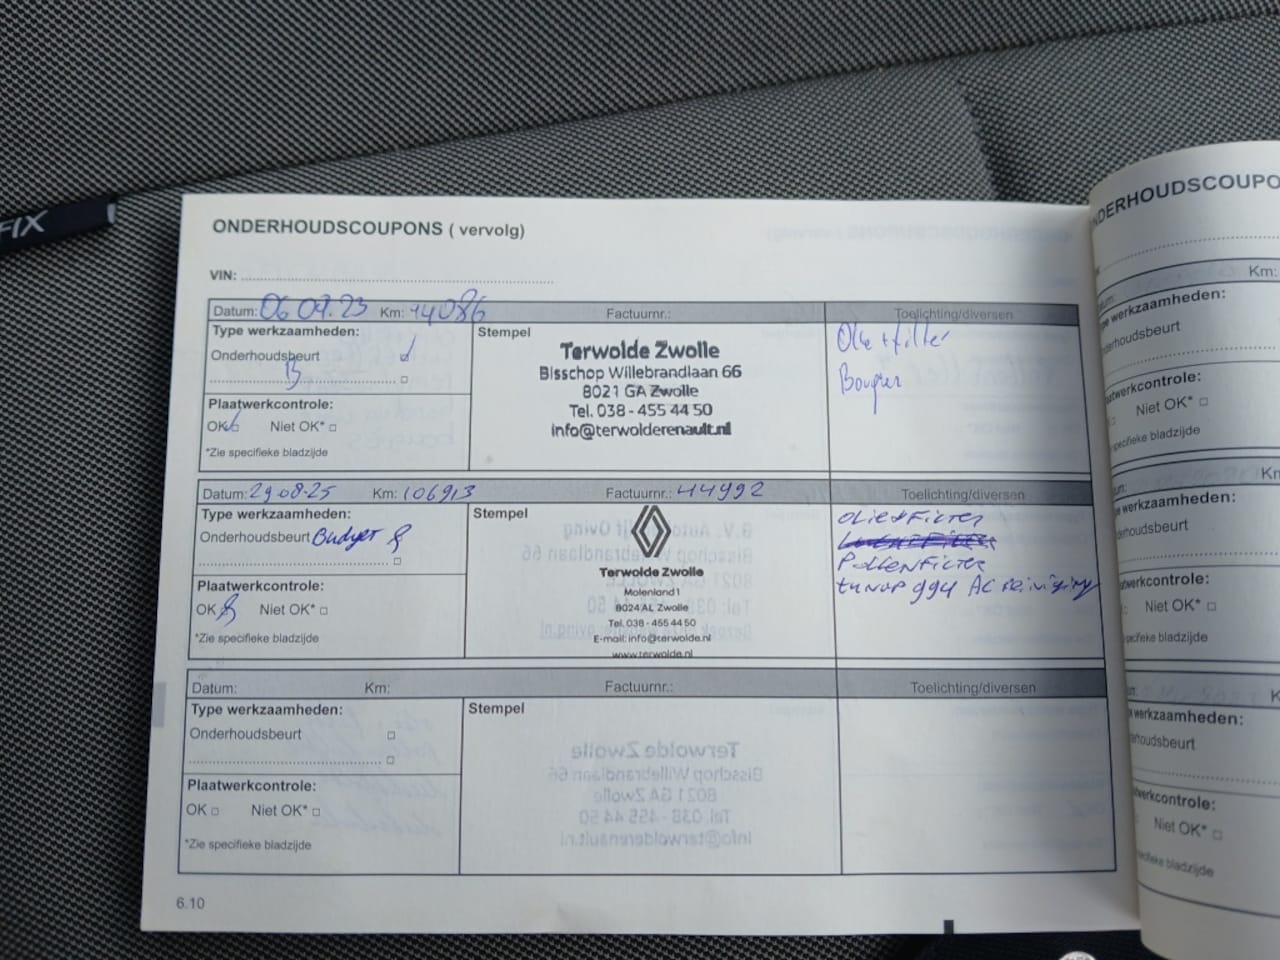 FIX
ONDERHOUDSCOUPONS ( vervolg)
VIN:
Datum: 06 07.23 Km: 94086 Factuurnr.: Toelichting/diversen
Type werkzaamheden:
Onderhoudsbeurt
B
Plaatwerkcontrole:
OK Niet OK*
*Zie specifieke bladzijde
Stempel
Terwolde Zwolle
Bisschop Willebrandlaan 66
8021 GA Zwolle
Tel. 038 - 455 44 50
info@terwolderenault.nl
Olie + filter
Bougies
Datum: 29-08-25 Km: 106913 Factuurnr.: 44992 Toelichting/diversen
Type werkzaamheden:
Onderhoudsbeurt Budget
Plaatwerkcontrole:
OK Niet OK*
*Zie specifieke bladzijde
Stempel
Terwolde Zwolle
Molenland 1
8024 AL Zwolle
Tel. 038 - 455 44 50
E-mail: info@terwolde.nl
www.terwolde.nl
olie+Filter
PollenFilter
tunap 994 AC reiniging
Datum: Km: Factuurnr.: Toelichting/diversen
Type werkzaamheden:
Onderhoudsbeurt
Plaatwerkcontrole:
OK Niet OK*
*Zie specifieke bladzijde
Stempel
6.10
NDERHOUDSCOUPO
Km:
werkzaamheden:
nderhoudsbeurt
aatwerkcontrole:
Niet OK*
specifieke bladzijde
Km
werkzaamheden:
derhoudsbeurt
aatwerkcontrole:
Niet OK*
specifieke bladzijde
K
werkzaamheden:
erhoudsbeurt
werkcontrole:
Niet OK*
specifieke bladzijde